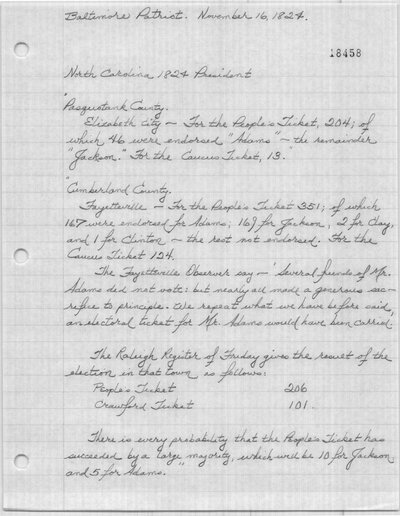 Baltimore Patriot. November 16, 1824.
18458
North Carolina 1824 President
"Pasquotank County.
Elizabeth City — For the People's Ticket, 204; of
which 46 were endorsed "Adams" — the remainder
"Jackson." For the Caucus Ticket, 13.
"Cumberland County.
Fayetteville — For the People's Ticket 351; of which
167 were endorsed for Adams; 169 for Jackson, 2 for Clay,
and 1 for Clinton — the rest not endorsed. For the
Caucus Ticket 124.
The Fayetteville Observer say — 'Several friends of Mr.
Adams did not vote: but nearly all made a generous sac-
rifice to principle. We repeat what we have before said,
an electoral ticket for Mr. Adams would have been carried.
The Raleigh Register of Friday gives the result of the
election in that town as follows:
People's Ticket 206
Crawford Ticket 101.
There is every probability that the People's Ticket has
succeeded by a large majority, which will be 10 for Jackson
and 5 for Adams."